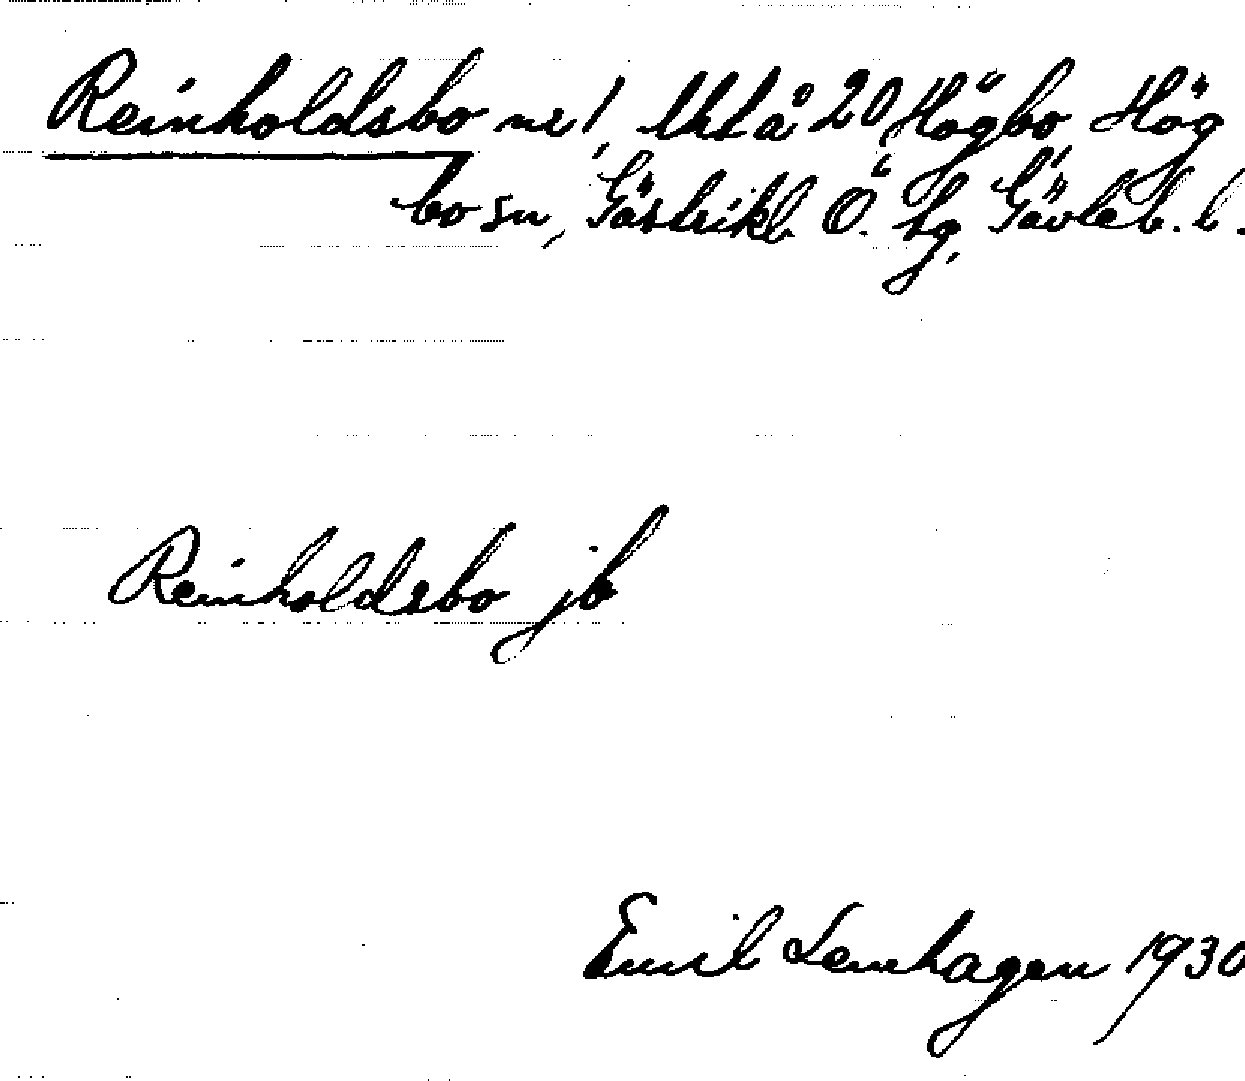 Reinholdsbo nr 1, Utså 20 Högbo Hög
bo sn, Gästrikl. Ö. hg, Gävleb. l.
Reinholdsbo jb
Emil Lenhagen 1930